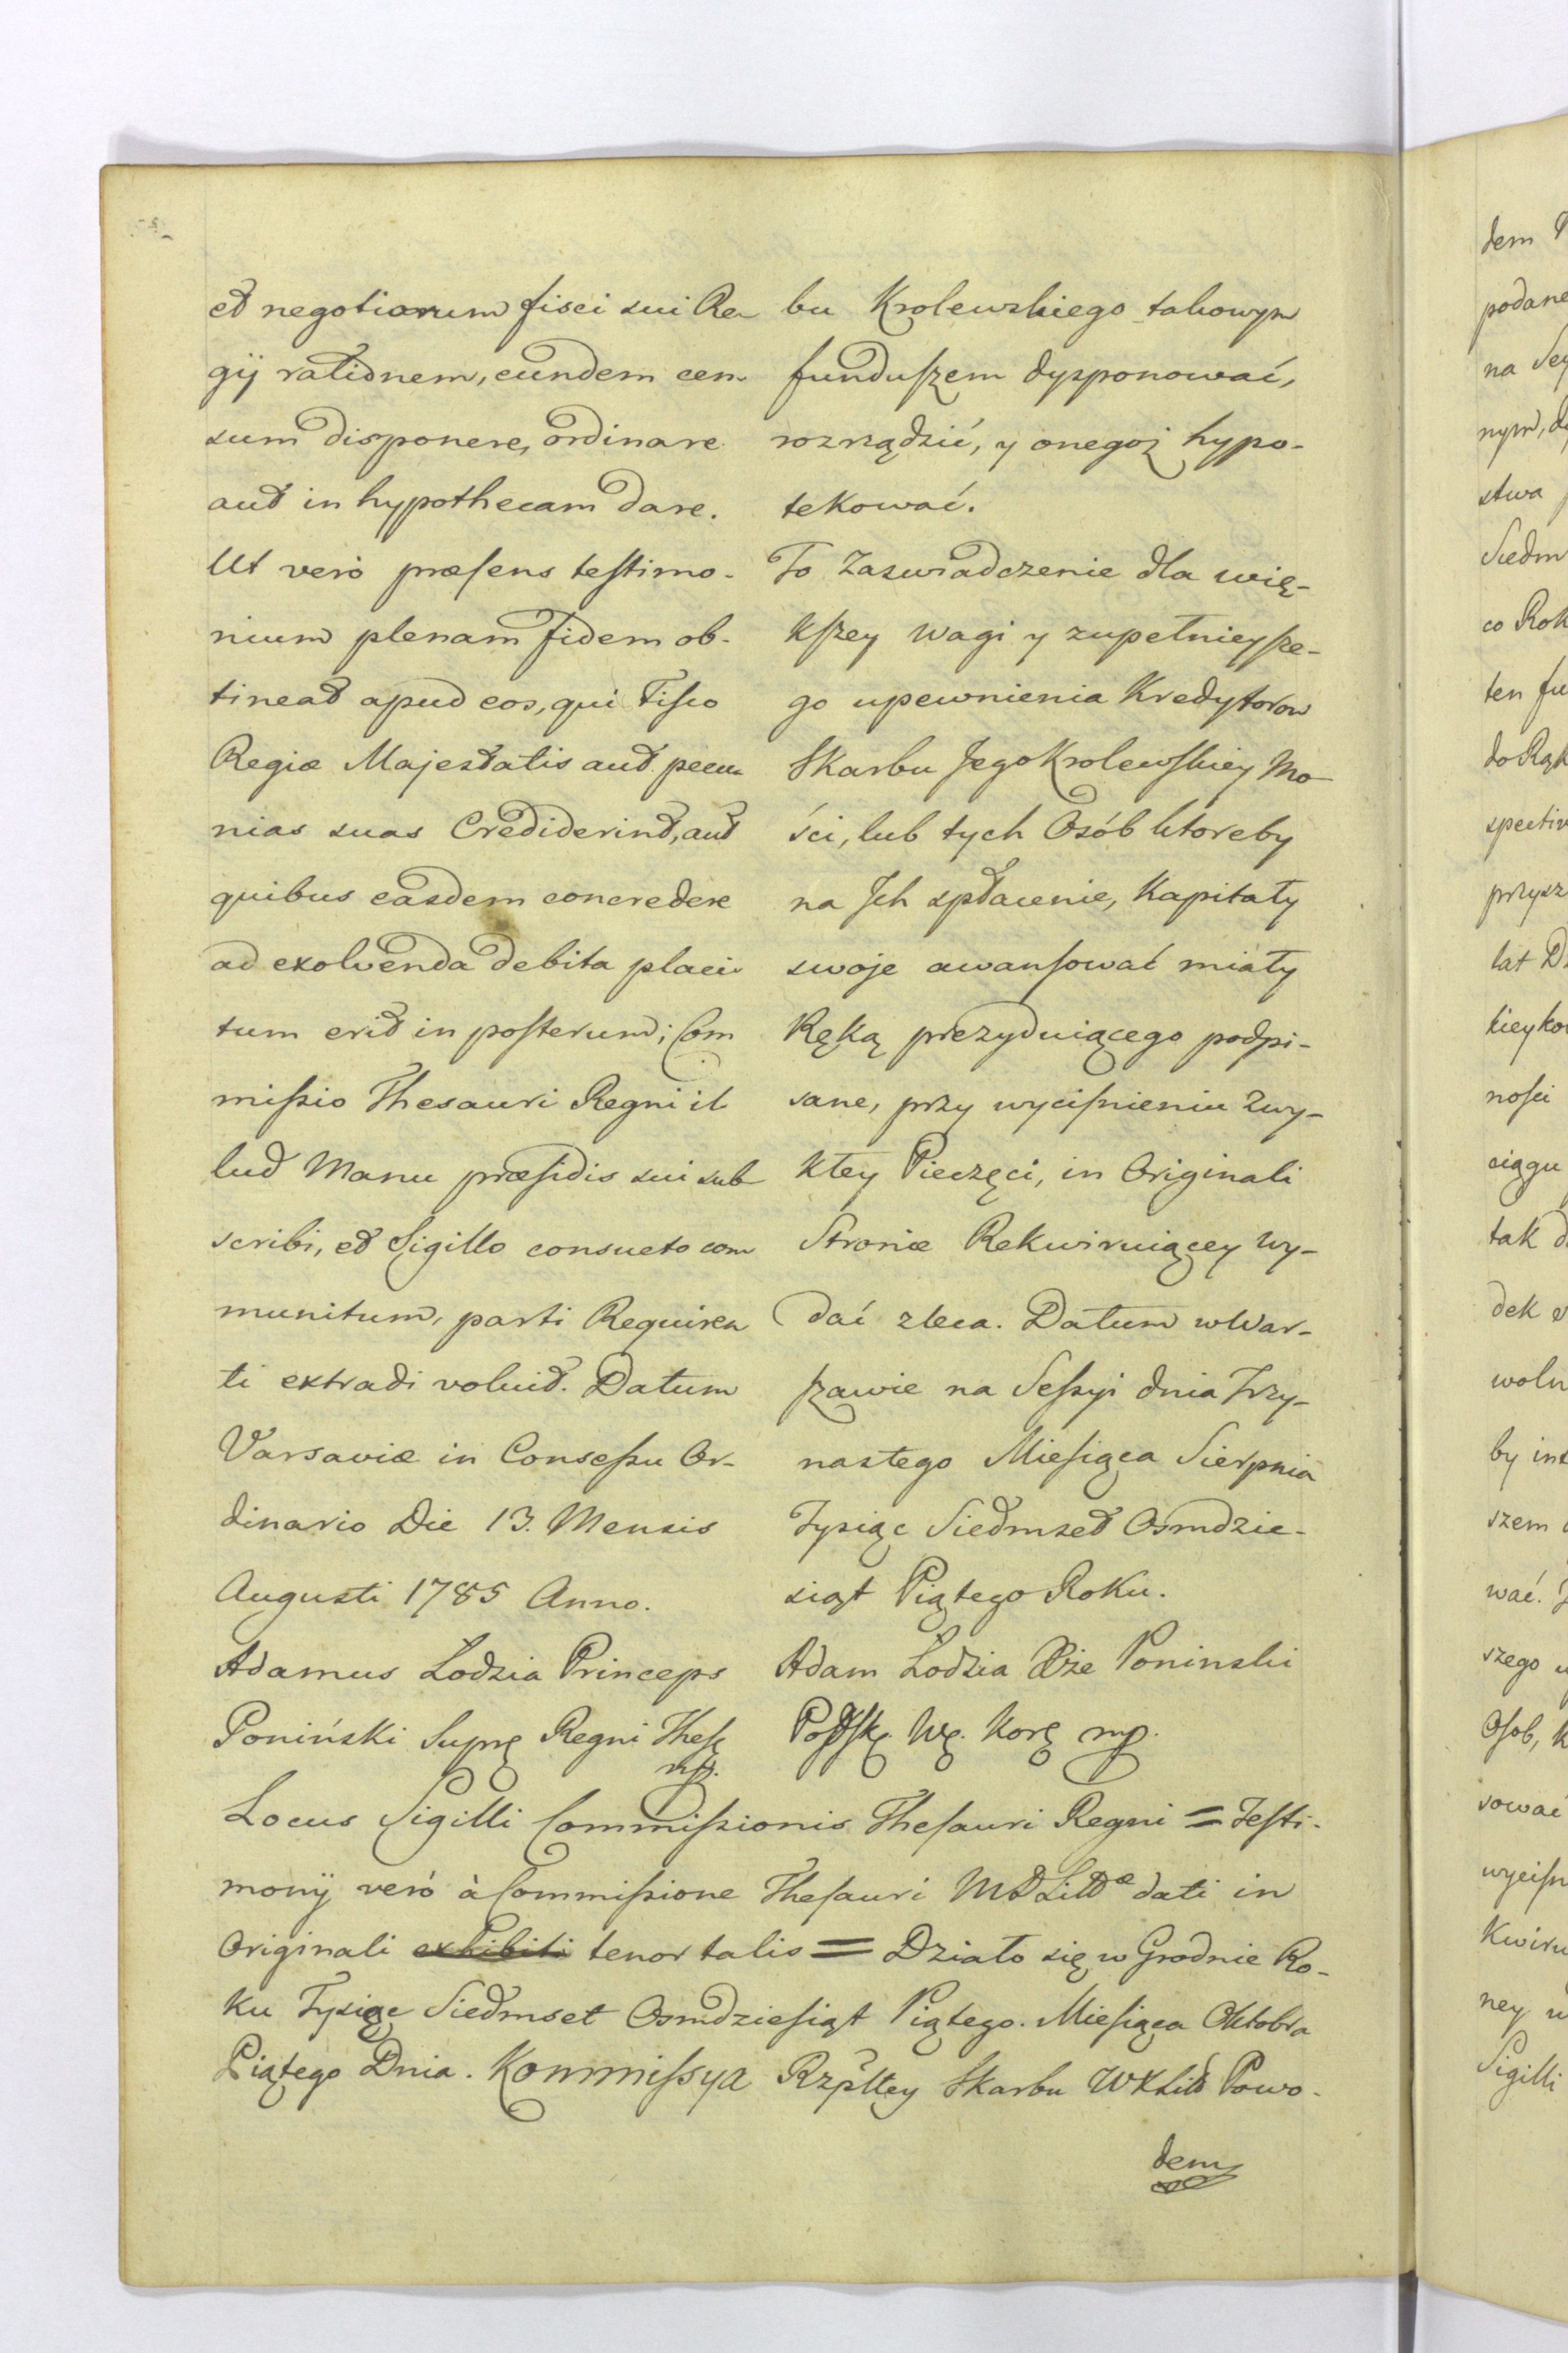 et negotiorum fisci sui Re-
gij rationem, eundem cen-
sum disponere, ordinare
aut in hypothecam dare.
Ut verò præsens testimo-
nium plenam fidem ob-
tineat apud eos, qui Fisco
Regiæ Majestatis aut pecu-
nias suas Crediderint, aut
quibus easdem concredere
ad exolvenda debita placi-
tum erit in posterum; Com
missio Thesauri Regni il
lud Manu præsidis sui sub
scribi, et Sigillo consueto com
munitum, parti Requiren
ti extradi voluit. Datum
Varsaviæ in Consessu Or-
dinario Die 13. Mensis
Augusti 1785 Anno.
Adamus Łodzia Princeps
Poniński Supr Regni Thes
mp.
bu Krolewskiego takowym
funduszem dysponować,
rozrządzić, y onegoż hypo-
tekować.
To Zaswiadczenie dla wię-
kszey wagi y zupełnieysze-
go upewnienia Kredytorow
Skarbu Jego Krolewskiey Mo-
ści, lub tych Osób ktoreby
na Jch spłacenie, Kapitały
swoje awansować miały
Ręką prezyduiącego podpi-
sane, przy wycisnieniu Zwy-
kłey Pieczęci, in Originali
Stronie Rekwiruiącey wy-
dać zleca. Datum w War-
szawie na Sessyi dnia Trzy-
nastego Miesiąca Sierpnia
Tysiąc Siedmset Osmdzie-
siąt Piątego Roku.
Adam Łodzia Xże Poninski
Podsk. W. Kor mp.
Locus Sigilli Commissionis Thesauri Regni = Testi-
monij verò à Commissione Thesauri MDLittæ dati in
Originali exhibiti tenor talis = Działo się w Grodnie Ro-
ku Tysiąc Siedmset Osmdziesiąt Piątego. Miesiąca Oktobra
Piątego Dnia. Kommissya Rzpltey Skarbu WXLitt Powo-
dem
dem
podane
na Sey
nym,
stwa
Siedm
co Rok
ten fu
do Rąk
spectiv
przysz
lat
kieyko
nosci
ciągu
tak
dek
woln
by
szem
wać.
szego
Osob, k
sować
wycisn
Kwiru
ney
Sigilli